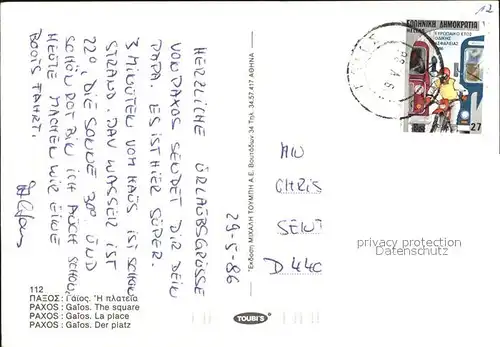 12
ΕΛΛΗΝΙΚΗ ΔΗΜΟΚΡΑΤΙΑ
HELLAS
ΕΥΡΩΠΑΪΚΟ ΕΤΟΣ
ΟΔΙΚΗΣ
ΑΣΦΑΛΕΙΑΣ
27
HERZLICHE URLAUBSGRÜSSE
VON PAXOS SENDET DIR DEIN
PAPA. ES IST HIER SUPER.
3 MINUTEN VOM HAUS IST SCHON
STRAND. DAS WASSER IST
22°, DIE SONNE 30° UND
SCHÖN ROT BIN ICH AUCH SCHON.
HEUTE MACHEN WIR EINE
BOOTSFAHRT.
29-5-86
AN
CHRIS
D 440
privacy protection
Datenschutz
Έκδοση ΜΙΧΑΛΗ ΤΟΥΜΠΗ Α.Ε. Βουτάδων 34 Τηλ. 34.57.417 ΑΘΗΝΑ
112
ΠΑΞΟΣ : Γάϊος. Ἡ πλατεῖα
PAXOS : Gaïos. The square
PAXOS : Gaïos. La place
PAXOS : Gaïos. Der platz
TOUBI'S